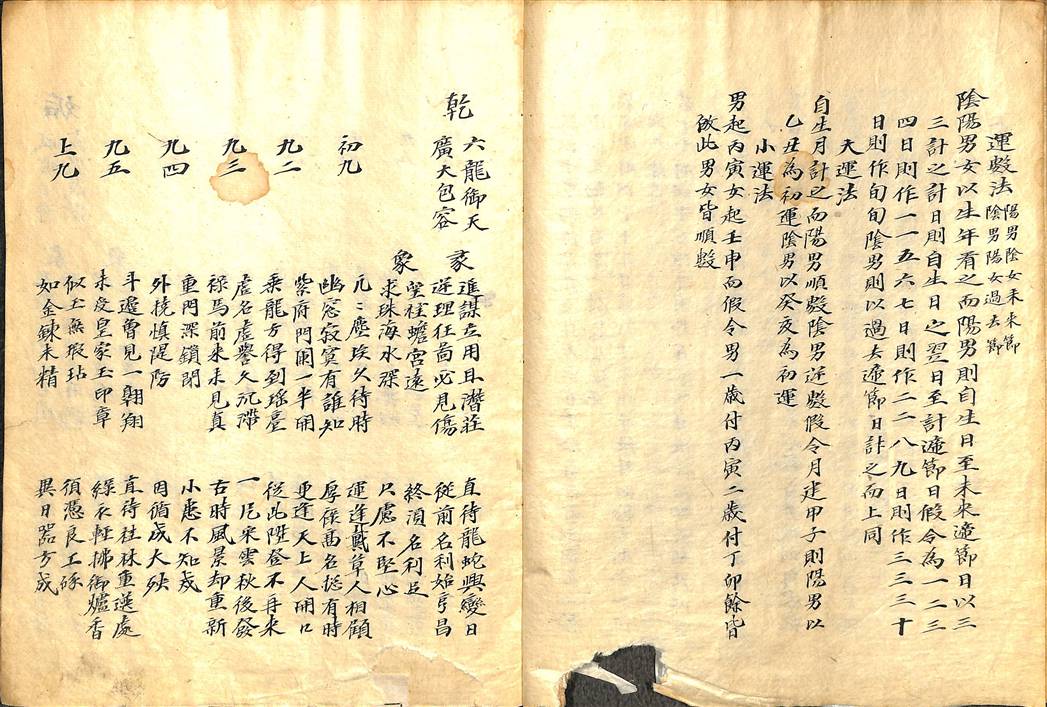 運數法 陽男陰女未來節
陰男陽女過去節
陰陽男女以生年看之而陽男則自生日至未來邊節日以三
三計之計日則自生日之翌日至計邊節日假令為一二三
四日則作一一五六七日則作二二八九日則作三三三十
日則作旬旬陰男則以過去邊節日計之而上同
大運法
自生月計之而陽男順數陰男逆數假令月建甲子則陽男以
乙丑為初運陰男以癸亥為初運
小運法
男起丙寅女起壬申而假令男一歲付丙寅二歲付丁卯餘皆
倣此男女皆順數
乾 六龍御天
廣大包容
彖 進謀立用且潛莊 直待龍蛇興變日
逆理狂啚必見傷 從前名利始亨昌
象 坐桂蟾宮遠 終須名利足
求珠海水深 只慮不堅心
初九 兀〻塵埃久待時 運逢戴草人相顧
幽窓寂寞有誰知 厚祿高名挺有時
九二 紫府門闌一半開 更逢天上人開口
乘龍方得到瑤臺 從此陞登不再來
九三 虛名虛譽久沉滯 一尾朱雲秋後發
祿馬前來未見真 古時風景却重新
九四 重門深鎖閉 小患不知戒
外撓慎隄防 因循成大殃
九五 斗邊曾見一翱翔 直待桂林重選處
未受皇家玉印章 綠衣輕拂御爐香
上九 似玉無瑕玷 須憑良工琢
如金鍊未精 異日器方成